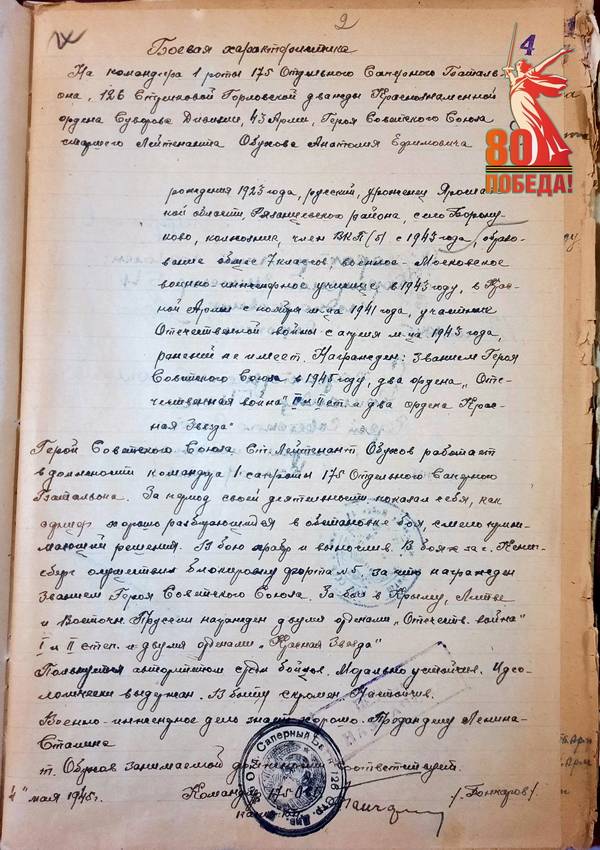 2
4
Боевая характеристика
На командира 1 роты 175 Отдельного Саперного Баталь-
она, 126 Стрелковой Горловской дважды Краснознаменной
ордена Суворова Дивизии, 43 Армии, Героя Советского Союза
старшего Лейтенанта Обухова Анатолия Ефимовича
80
ПОБЕДА!
рождения 1923 года, русский, уроженец Яросла-
кой области, Рязанцевского района, село
ково, колхозник, член ВКП(б) с 1943 года, образо-
вание общее 7 классов, военное - Московское
военно-инженерное училище в 1943 году, в Крас-
ной Армии с ноября м-ца 1941 года, участник
Отечественной войны с апреля м-ца 1943 года,
ранений не имеет. Награжден: званием Героя
Советского Союза в 1945 году, два ордена „Оте-
чественная война" I и II ст. и два ордена Крас-
ная Звезда"
Герой Советского Союза Ст. Лейтенант Обухов работает
в должности командира 1 сап.роты 175 Отдельного Саперного
Батальона. За период своей деятельности показал себя, как
офицер хорошо разбирающийся в обстановке боя, смело прини-
мающий решения. В бою храбр и вынослив. В боях за г. Кениг-
сберг осуществил блокировку форта №5 за что награжден
Званием Героя Советского Союза. За бои в Крыму, Литве
и Восточн. Пруссии награжден двумя орденами „Отечеств. война"
I и II степ. и двумя орденами „Красная Звезда"
Пользуется авторитетом среди бойцов. Морально устойчив. Идео-
логически выдержан. В быту скромен. Настойчив.
Военно-инженерное дело знает хорошо. Предан делу Ленина-
Сталина
т. Обухов занимаемой должности соответствует.
" мая 1945г. Командир 175 ОСБ
/Гончаров/
Отд. Саперный 126 Стр. Див.